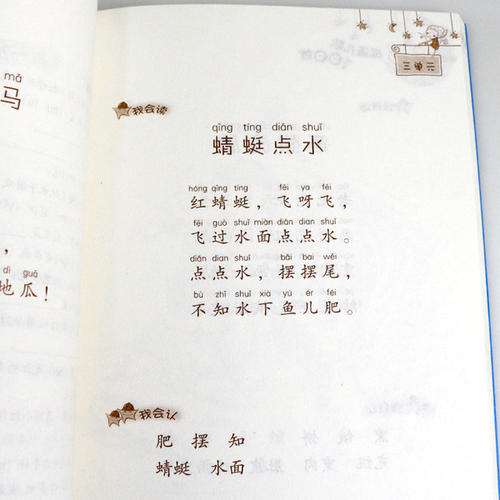 mǎ
马
，
dì guā
地瓜！
三单元
我会读
qīng tíng diǎn shuǐ
蜻蜓点水
hóng qīng tíng fēi ya fēi
红蜻蜓，飞呀飞，
fēi guò shuǐ miàn diǎn dian shuǐ
飞过水面点点水。
diǎn dian shuǐ bǎi bai wěi
点点水，摆摆尾，
bù zhī shuǐ xià yú ér féi
不知水下鱼儿肥。
我会认
肥 摆 知
蜻蜓 水面